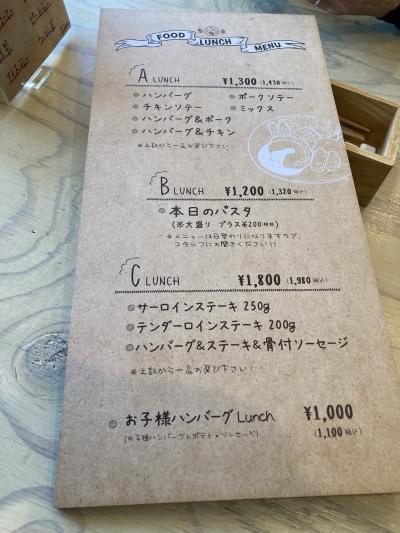 FOOD LUNCH MENU
A LUNCH ¥1,300 (1,430税込)
ハンバーグ ポークソテー
チキンソテー ミックス
ハンバーグ&ポーク
ハンバーグ&チキン
※上記から一品お選び下さい!
B LUNCH ¥1,200 (1,320税込)
本日のパスタ
(※大盛り プラス¥200税別)
※メニューは日替わりになりますので、
スタッフにお聞きください!!
C LUNCH ¥1,800 (1,980税込)
サーロインステーキ 250g
テンダーロインステーキ 200g
ハンバーグ&ステーキ&骨付ソーセージ
※上記から一品お選び下さい!
お子様ハンバーグ Lunch ¥1,000
(お子様ハンバーグ&ポテト・ソーセージ) (1,100税込)